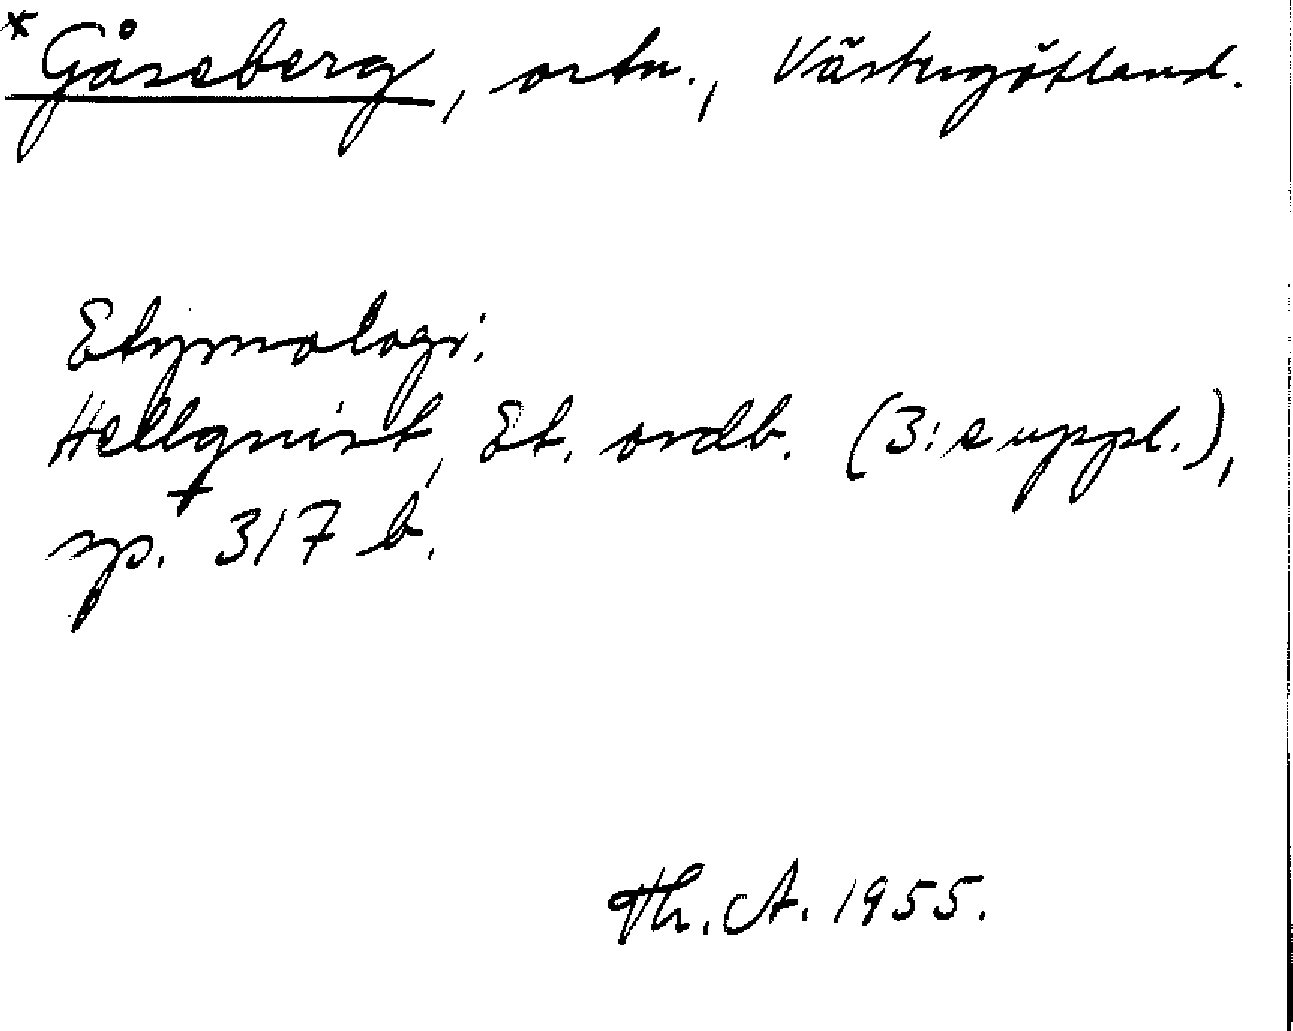 *Gåseberg, ortn., Västergötland.
Etymologi:
Hellquist, Et. ordb. (3:e uppl.),
sp. 317 b.
Th. A. 1955.